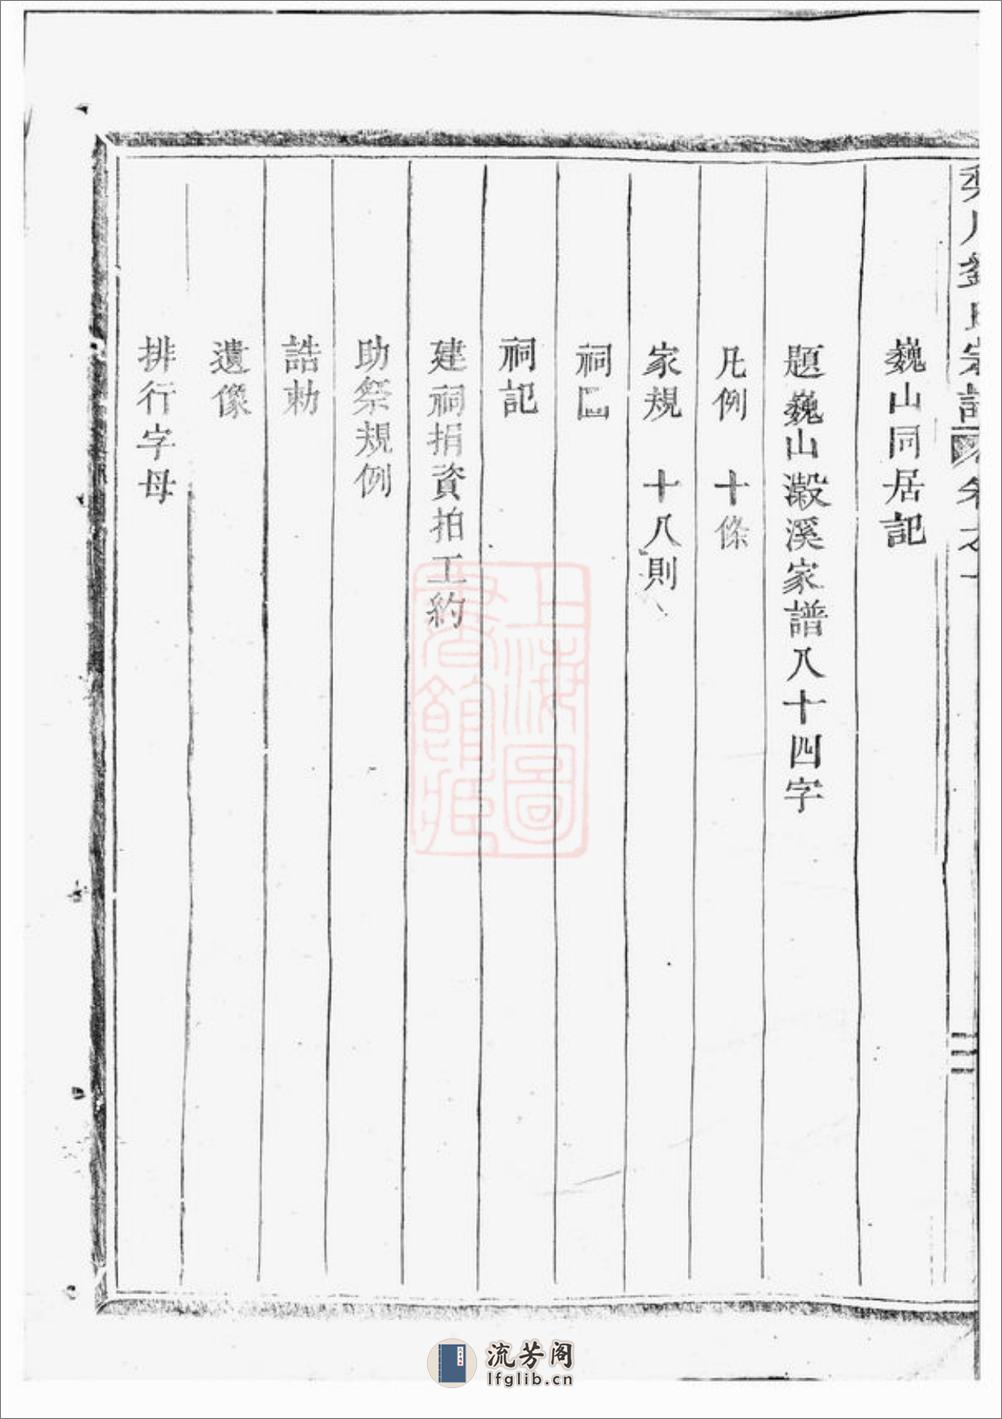 劉氏宗譜
巍山同居記
題巍山瀫溪家譜八十四字
凡例 十條
家規 十八則
祠
祠記
建祠捐資拍工約
助祭規例
誥勅
遺像
排行字母
上海圖書館藏
流芳阁
lfglib.cn